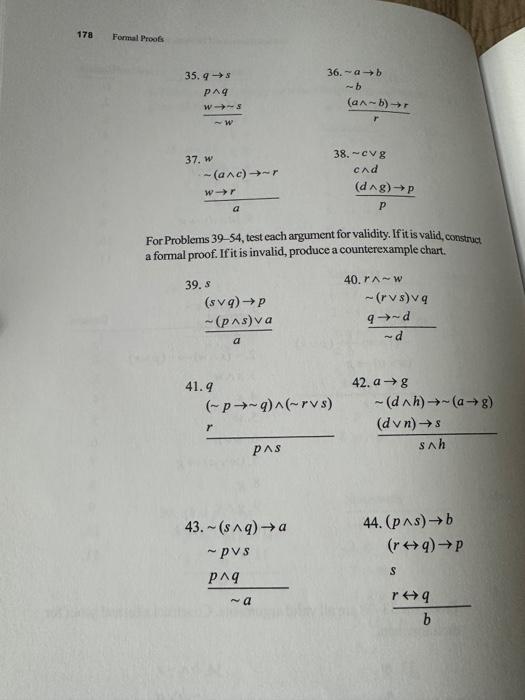 178 Formal Proofs
35. q→s
p∧q
w→~s
~w
36. ~a→b
~b
(a∧~b)→r
r
37. w
~(a∧c)→~r
w→r
a
38. ~c∨g
c∧d
(d∧g)→p
p
For Problems 39–54, test each argument for validity. If it is valid, construct
a formal proof. If it is invalid, produce a counterexample chart.
39. s
(s∨q)→p
~(p∧s)∨a
a
40. r∧~w
~(r∨s)∨q
q→~d
~d
41. q
(~p→~q)∧(~r∨s)
r
p∧s
42. a→g
~(d∧h)→~(a→g)
(d∨n)→s
s∧h
43. ~(s∧q)→a
~p∨s
p∧q
~a
44. (p∧s)→b
(r↔q)→p
s
r↔q
b